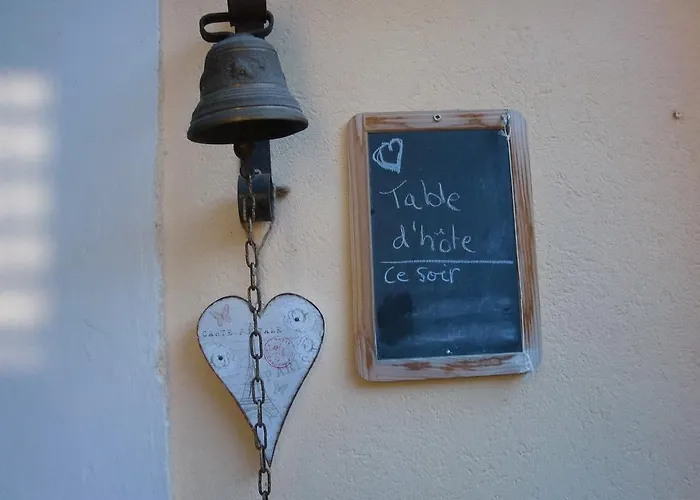 Table
d'hôte
ce soir
CARTE POSTALE